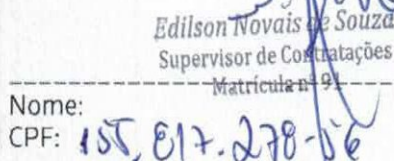 Edilson Novais de Souza
Supervisor de Contratações
Matrícula nº 91
Nome:
CPF: 155.817.278-56